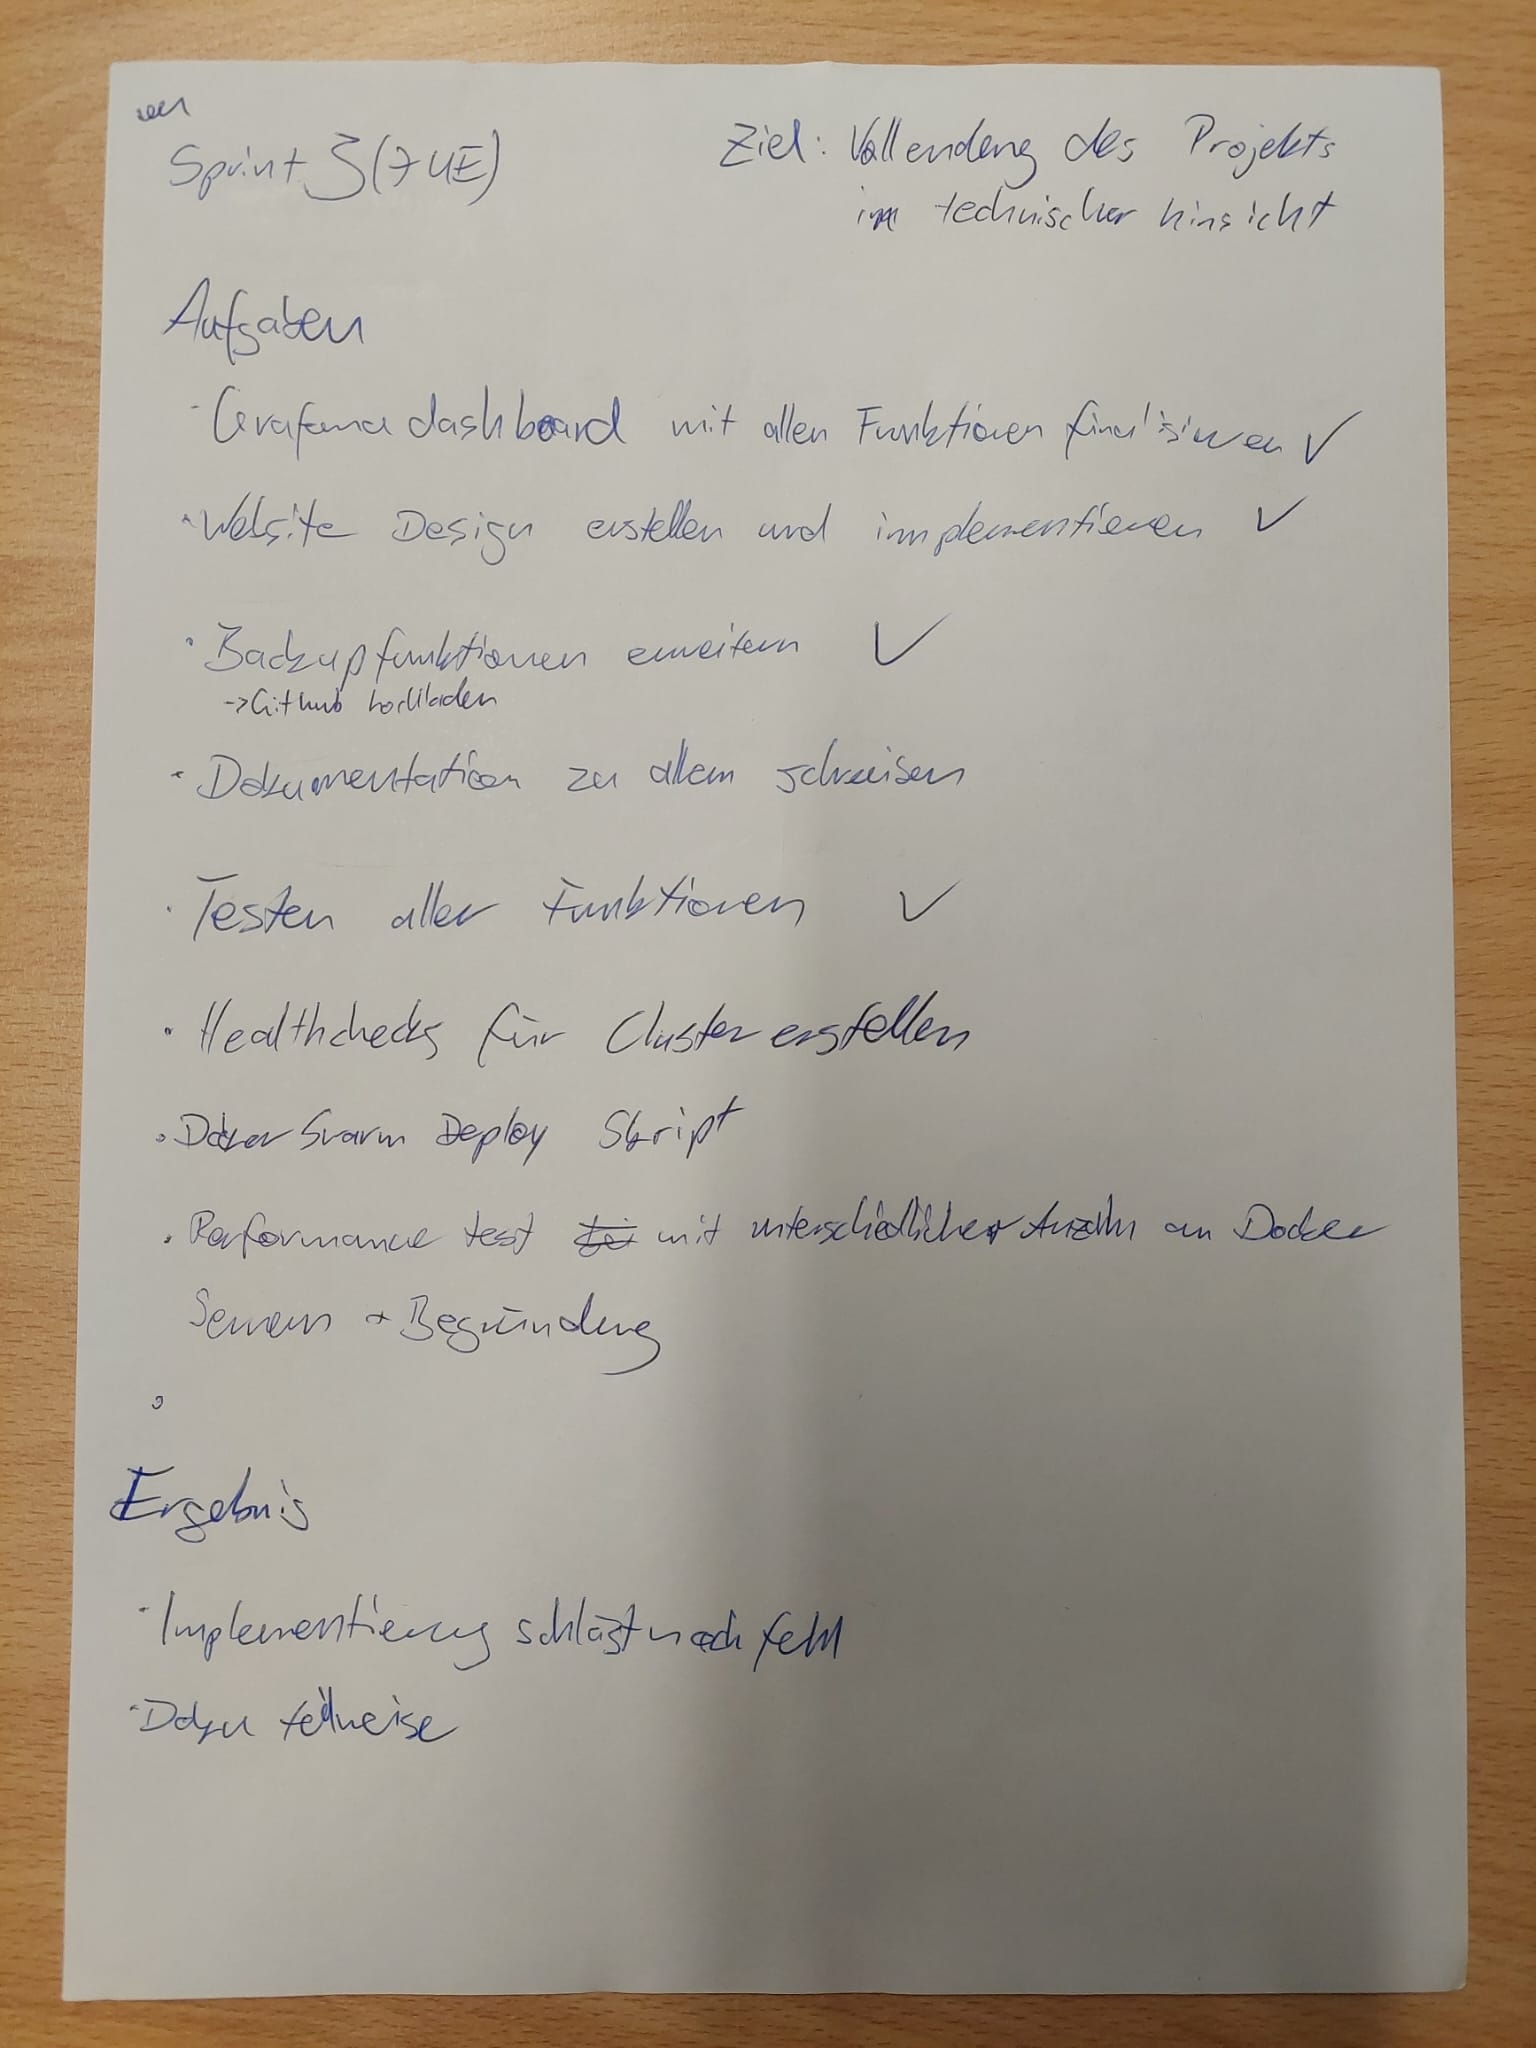 Sprint 3 (7 UE)
Ziel: Vollendung des Projekts
in technischer hinsicht
Aufgaben
· Grafana dashboard mit allen Funktionen finalisieren ✓
· Website Design erstellen und implementieren ✓
· Backupfunktionen erweitern ✓
-> Github hochladen
· Dokumentation zu allem schreiben
· Testen aller Funktionen ✓
· Healthchecks für Cluster erstellen
· Docker Swarm Deploy Skript
· Performance test mit unterschiedlicher Anzahl an Docker
Servern + Begründung
·
Ergebnis
· Implementierung schlägt noch fehl
· Doku teilweise